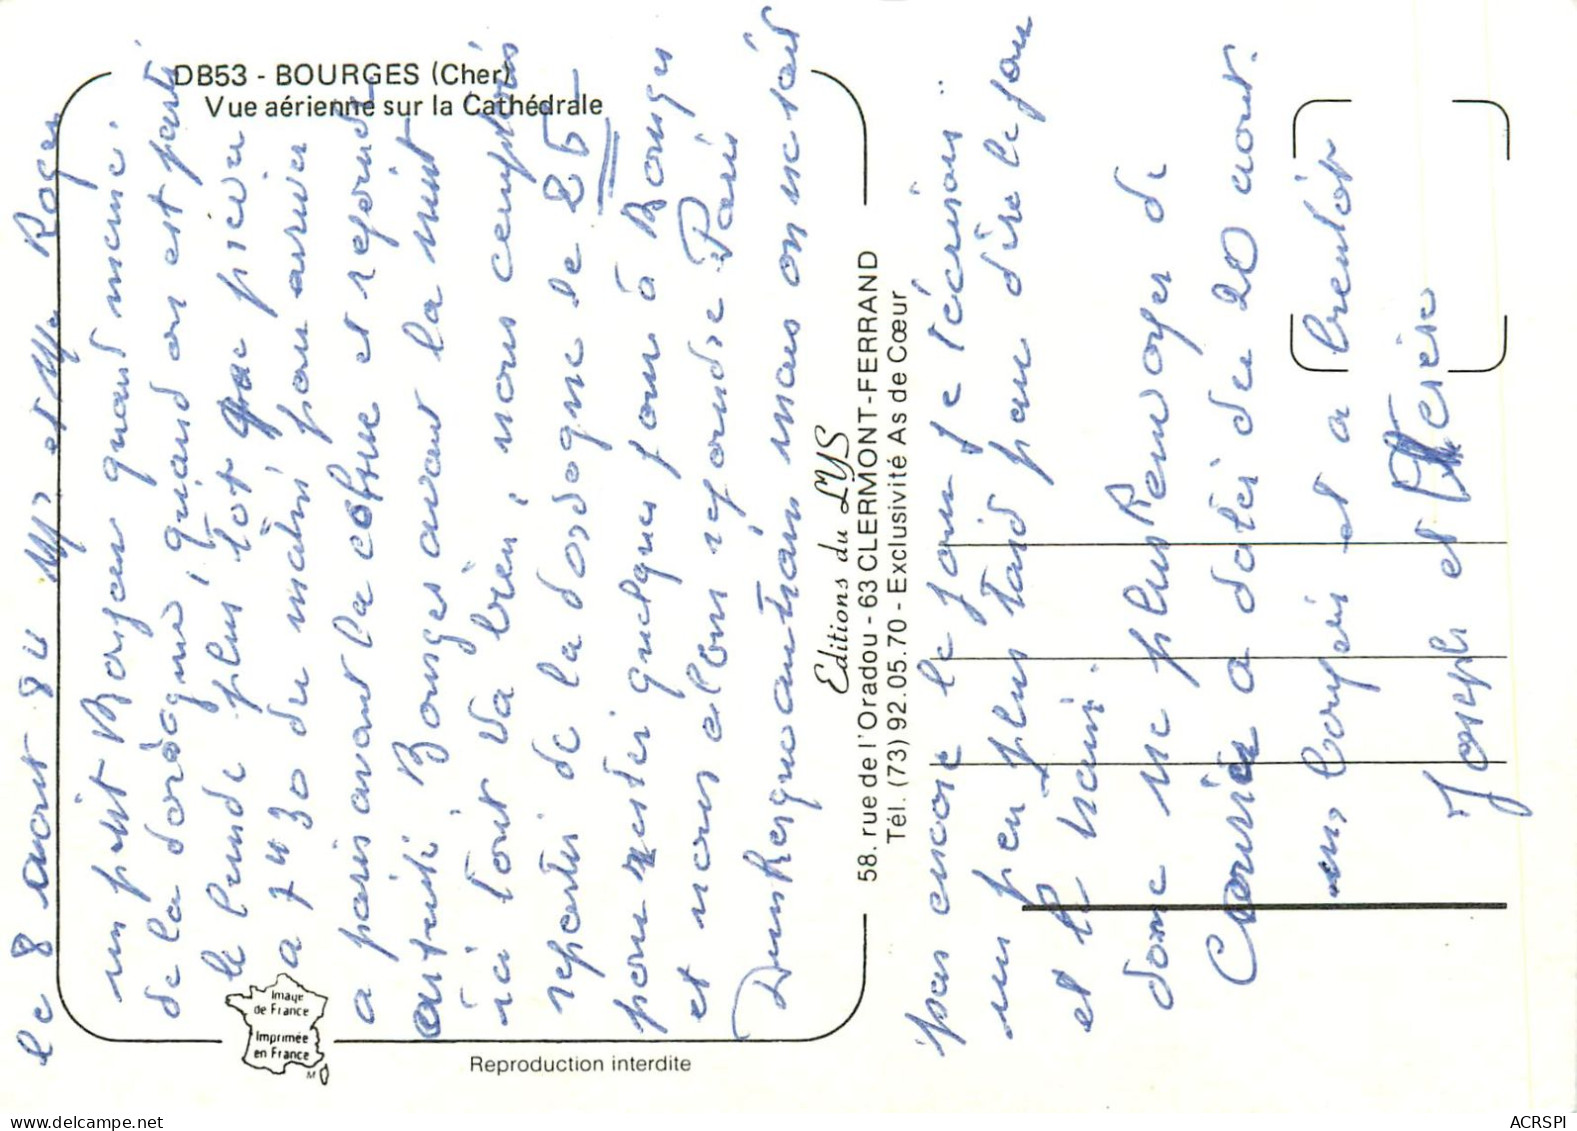 DB53 - BOURGES (Cher)
Vue aérienne sur la Cathédrale
le 8 aout 84 Mr et Mme Roger
un petit Bonjour quand meme
de la dordogne, quand on est parti
le lundi plus tot que prevu
a 7H30 du matin pour arriver
a paris avant la cohue et rejoindre
ensuite Bourges avant la nuit
ici tout va bien, nous comptons
repartir de la dordogne le 25
pour rester quelques jours à Bourges
et nous allons rejoindre Paris
Dunkerque au train mais on ne sait
pas encore le jour je t'écrirais
un peu plus tard pour dire le jour
et le train.
donc ne plus Renvoyer de
Courrier a dater du 20 aout.
et a bientôt
Joseph et
Editions du LYS
58, rue de l'Oradou - 63 CLERMONT-FERRAND
Tél. (73) 92.05.70 - Exclusivité As de Cœur
Image
de France
Imprimée
en France
M
Reproduction interdite
ACRSPI